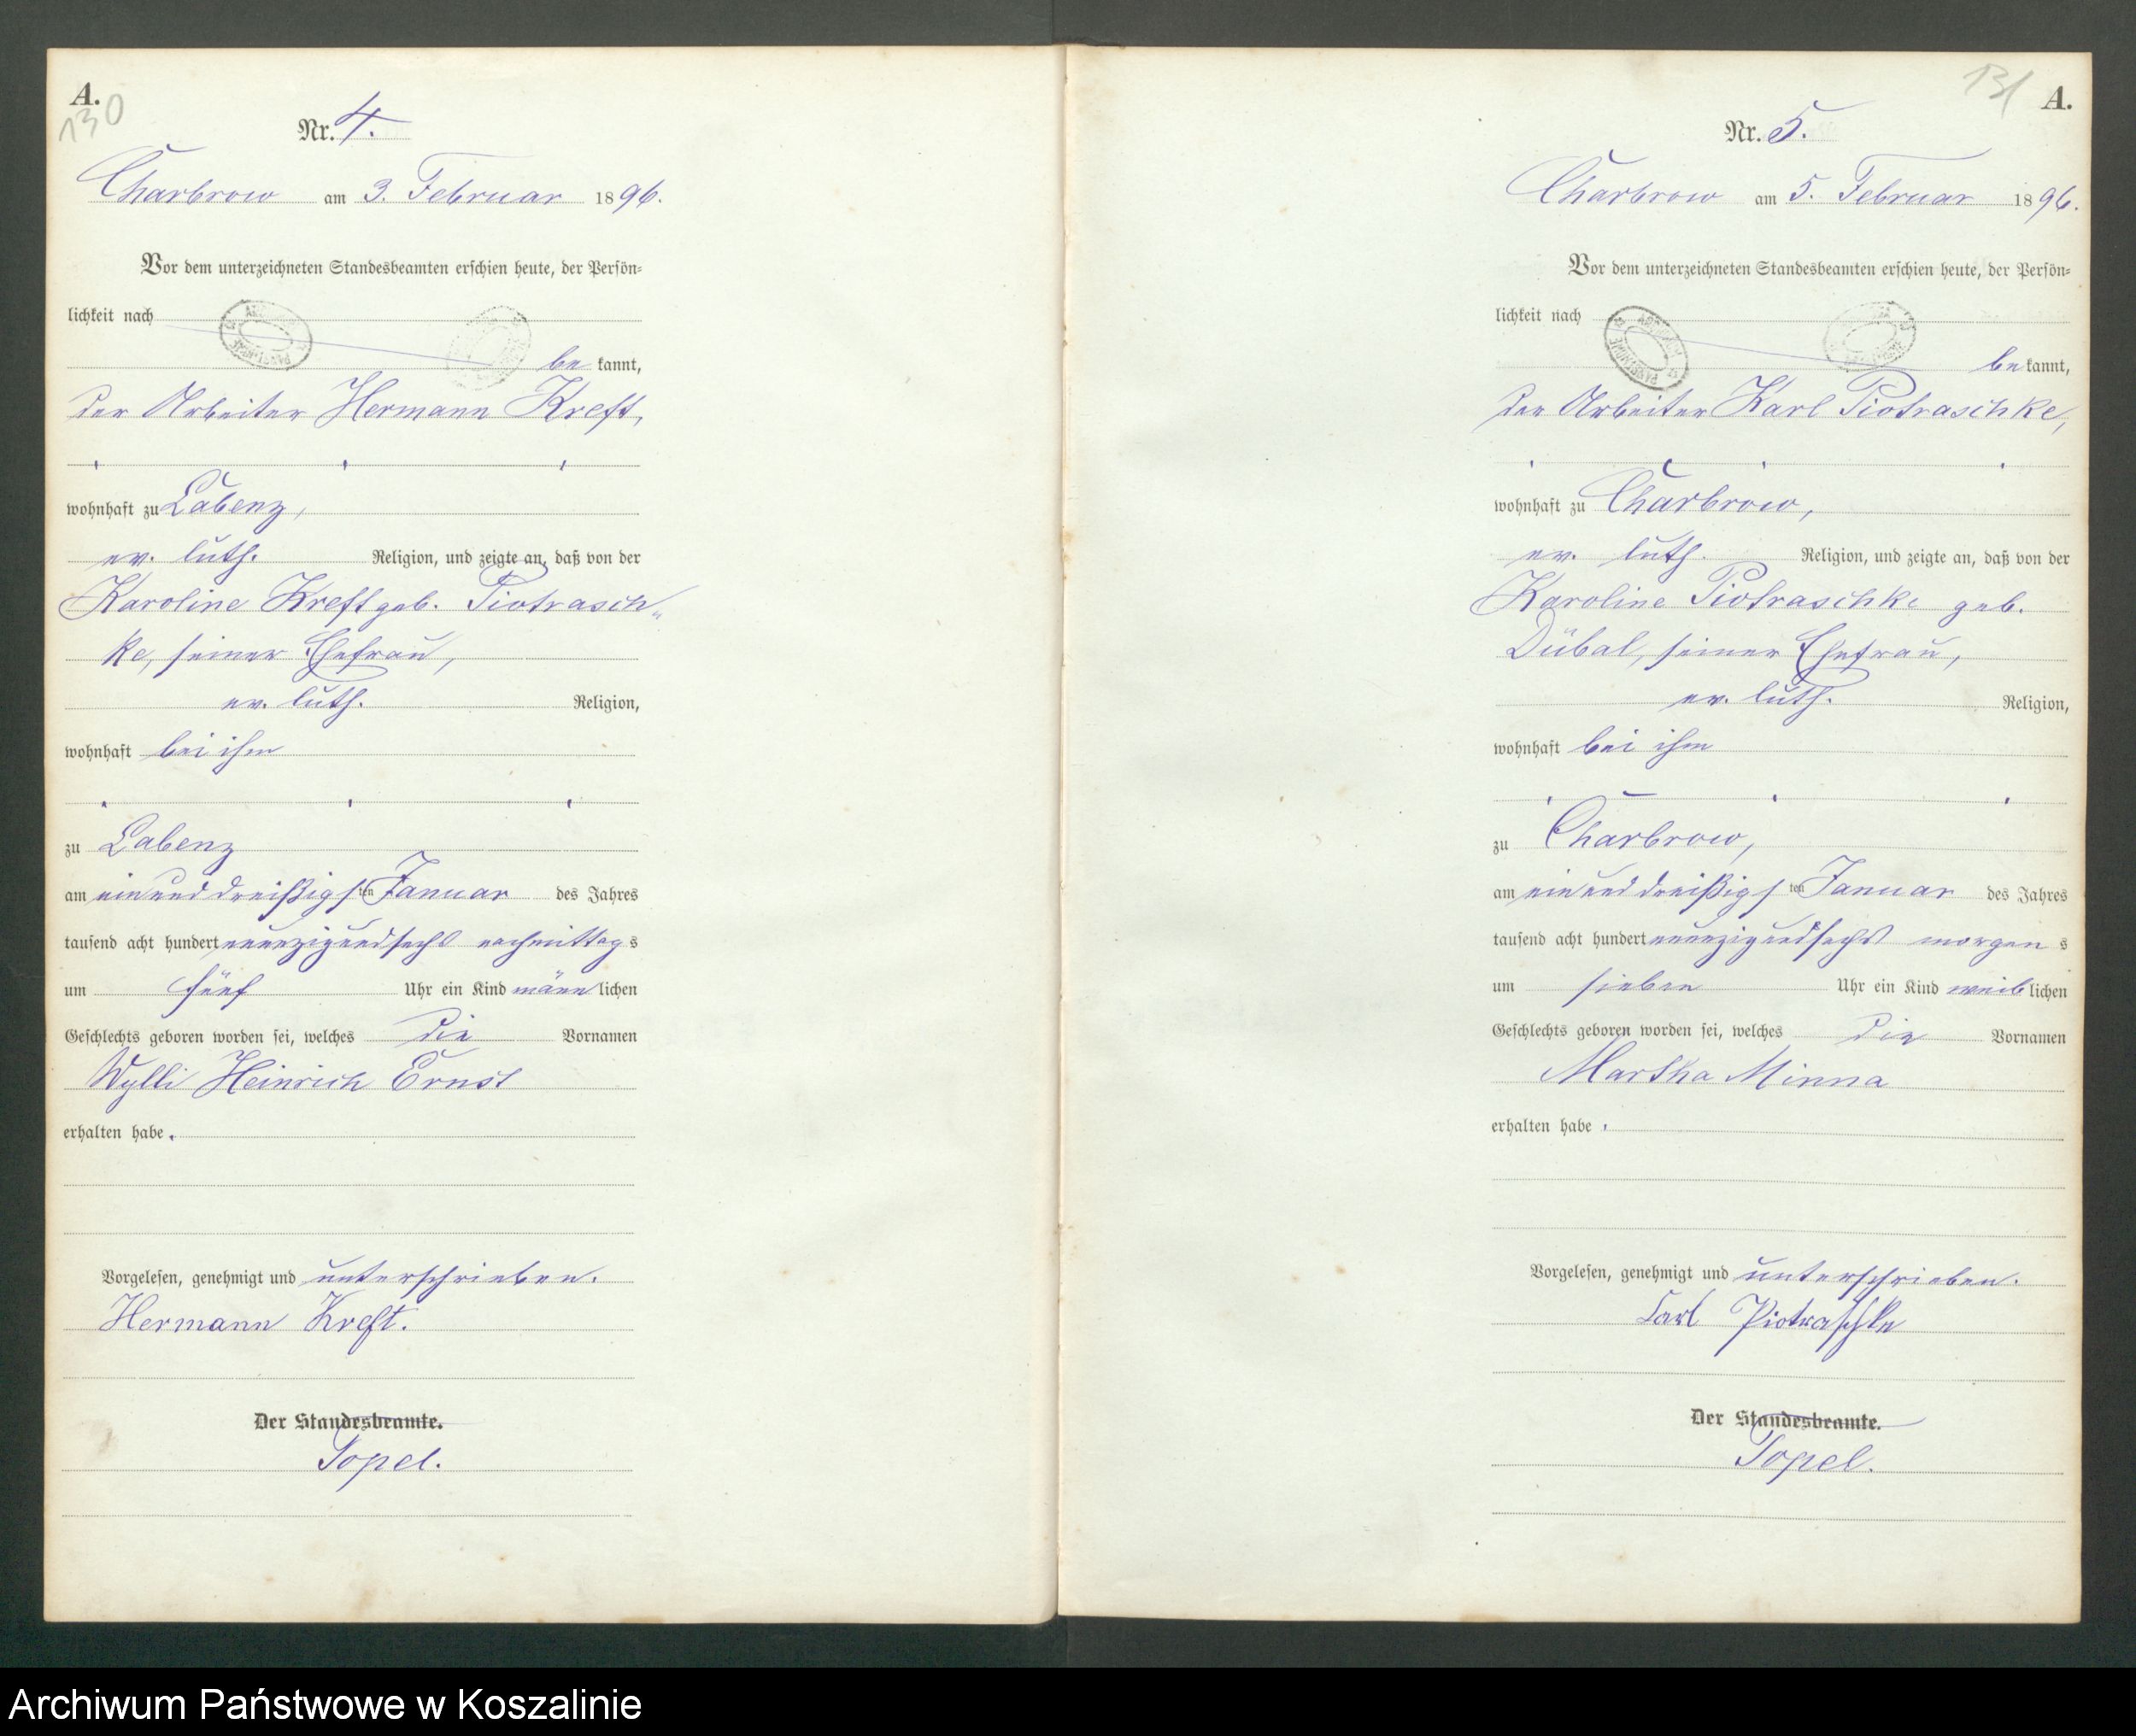 A.
130
Nr. 4.
Charbrow am 3. Februar 1896.
Vor dem unterzeichneten Standesbeamten erschien heute, der Persön=
lichkeit nach
be kannt,
der Arbeiter Hermann Kreft,
wohnhaft zu Labenz,
ev. luth. Religion, und zeigte an, daß von der
Karoline Kreft geb. Piotrasch„
ke, seiner Ehefrau,
ev. luth. Religion,
wohnhaft bei ihm
zu Labenz
am einunddreißigsten Januar des Jahres
tausend acht hundert neunzigundsechs nachmittags
um fünf Uhr ein Kind männlichen
Geschlechts geboren worden sei, welches die Vornamen
Wylli Heinrich Ernst
erhalten habe.
Vorgelesen, genehmigt und unterschrieben.
Hermann Kreft.
Der Standesbeamte.
Topel.
131
A.
Nr. 5.
Charbrow am 5. Februar 1896.
Vor dem unterzeichneten Standesbeamten erschien heute, der Persön=
lichkeit nach
be kannt,
der Arbeiter Karl Piotraschke,
wohnhaft zu Charbrow,
ev. luth. Religion, und zeigte an, daß von der
Karoline Piotraschke geb.
Dübal, seiner Ehefrau,
ev. luth. Religion,
wohnhaft bei ihm
zu Charbrow,
am einunddreißigsten Januar des Jahres
tausend acht hundert neunzigundsechs morgens
um sieben Uhr ein Kind weiblichen
Geschlechts geboren worden sei, welches die Vornamen
Martha Minna
erhalten habe.
Vorgelesen, genehmigt und unterschrieben.
Carl Piotraschke
Der Standesbeamte.
Topel.
Archiwum Państwowe w Koszalinie